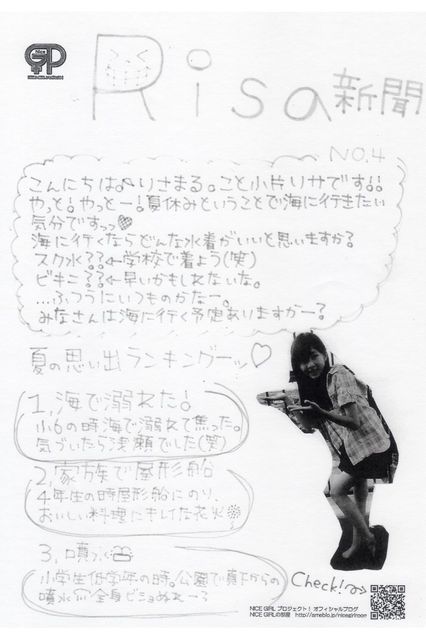 Nice
GP
Risa新聞
NO.4
こんにちは。りさまる。こと小片リサです!!
やっと!やっとー!夏休みということで海に行きたい
気分ですっ♥
海に行くならどんな水着がいいと思いますか?
スク水??←学校で着よう(笑)
ビキニ??←早いかもしれないな。
…ふつうにいつものかなー。
みなさんは海に行く予定ありますかー?
夏の思い出ランキングーッ♡
1,海で溺れた!
小6の時海で溺れて焦った。
気づいたら浅瀬でした(笑)
2,家族で屋形船
4年生の時屋形船にのり、
おいしい料理にキレイな花火
3,噴水
小学生低学年の時。公園で真下からの
噴水が全身ビショぬれー?
Check!
NICE GIRL プロジェクト! オフィシャルブログ
NICE GIRLの部屋 http://ameblo.jp/nicegirlroom